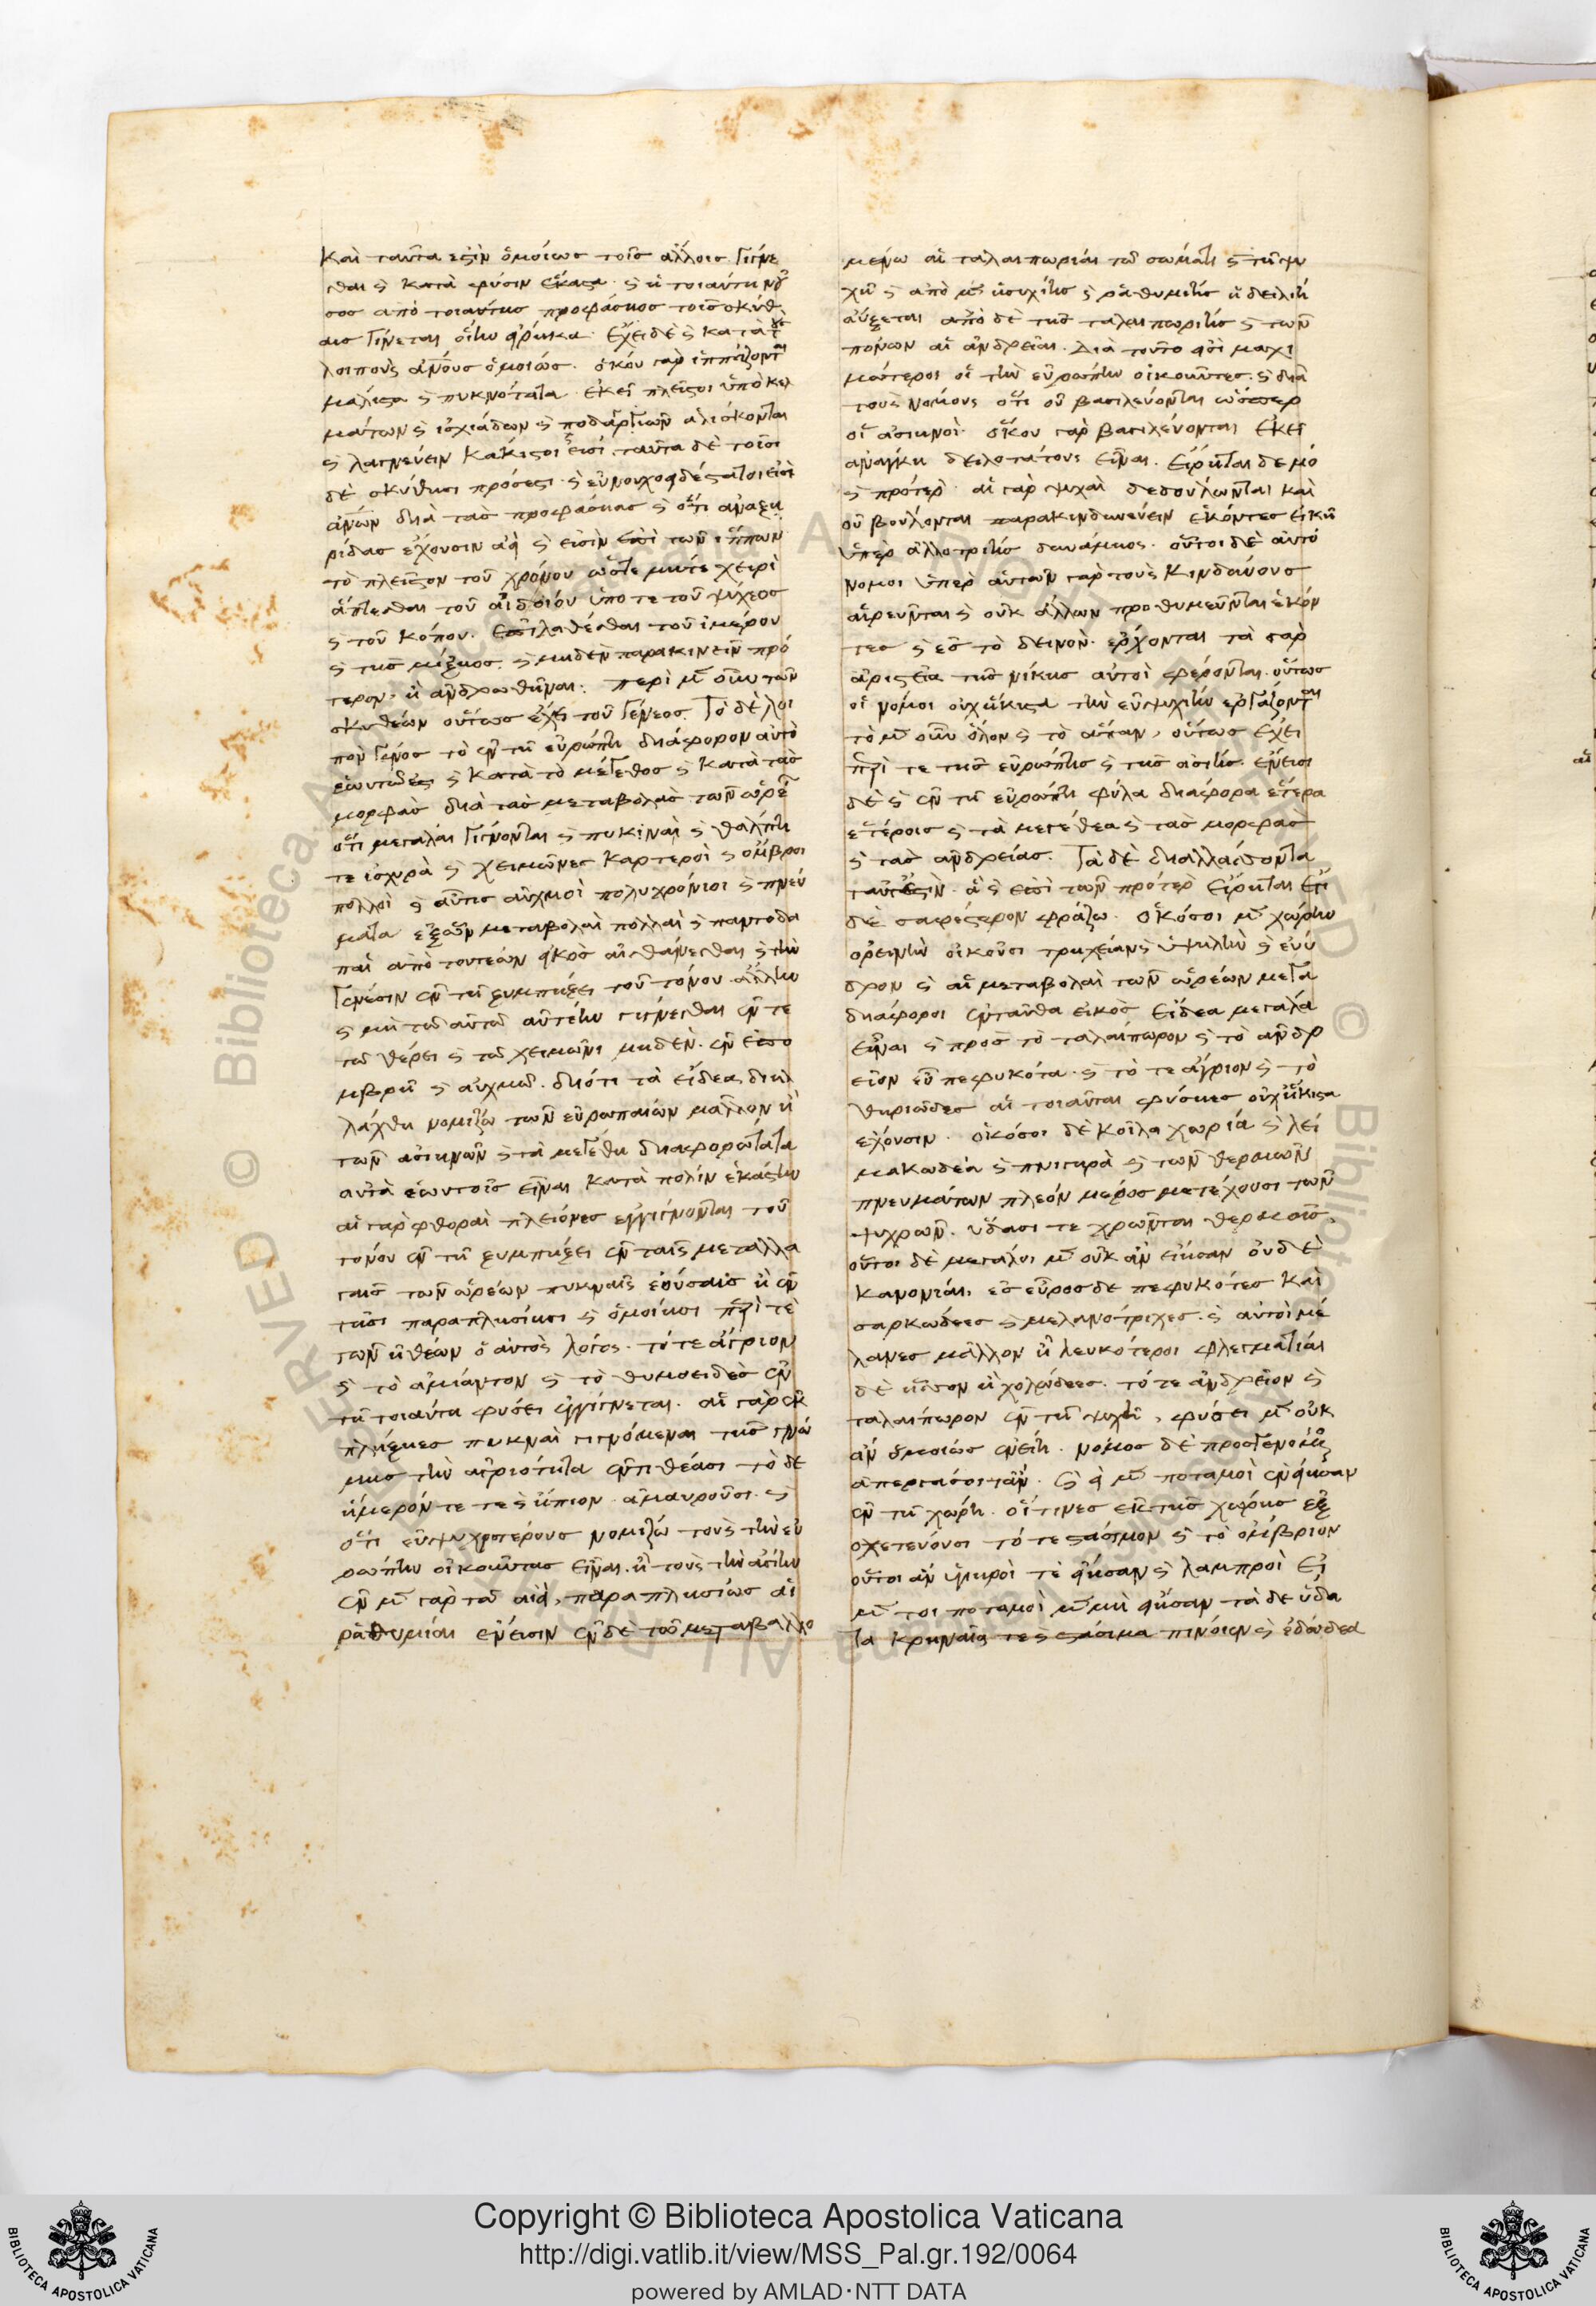 καὶ ταῦτα ἐςὶν ὁμοίως τοῖς ἄλλοις γίγνε
σθαι ς κατὰ φύσιν ἕκαςα· ς ἡ τοιαύτη νοῦ
σος ἀπὸ τοιαύτης προφάσηος τοῖς σκύθ
αις γίνεται οἵην εἴρηκα· ἔχει δὲ ς κατὰ τοὺς
λοιποὺς ἀνους ὁμοιώς· ὅκου γὰρ ἱππάζονται
μάλιςα ς πυκνότατα· ἐκεῖ πλεῖςοι ὑπὸ κεδ
μάτων ς ἰσχιάδων ς ποδαγριῶν ἁλίσκονται
ς λαγνεύειν κάκιςοι εἰσί· ταῦτα δὲ τοῖσι
δὲ σκύθησι πρόσεςι· ς εὐνουχοειδέςατοι εἰσὶ
ἀνων διὰ τὰς προφάσηας ς ὅτι ἀναξυ
ρίδας ἔχουσιν ἀεὶ ς εἰσὶν ἐπὶ τῶν ἵππων
τὸ πλεῖςον τοῦ χρόνου ὥςτε μήτε χειρὶ
ἅπτεσθαι τοῦ αἰδοίου ὑπό τε τοῦ ψύχεος
ς τοῦ κόπου. ἐπιλαθέσθαι τοῦ ἱμέρου
ς τῆς μίξηος. ς μηδὲν παρακινεῖν πρό
τερον, ἢ ἀνδρωθῆναι: περὶ μ οὖν τῶν
σκυθέων οὕτως ἔχει τοῦ γένεος. Τὸ δὲ λοι
πὸν γένος τὸ ἐν τῇ εὐρώπῃ διάφορον αὐτὸ
ς κατὰ τὸ μέγεθος ς κατὰ τὰς
μορφὰς διὰ τὰς μεταβολὰς τῶν ὡρέων
ὅτι μεγάλαι γίγνονται ς πυκιναὶ ς θάλπη
τε ἰσχυρὰ ς χειμῶνες καρτεροὶ ς ὄμβροι
πολλοὶ ς αὖτις αὐχμοὶ πολυχρόνιοι ς πνεύ
ματα ἐξ ὧν μεταβολαὶ πολλαὶ ς παντοδα
παὶ ἀπὸ τουτέων εἰκὸς αἰσθάνεσθαι ς τὴν
γένεσιν ἐν τῇ ξυμπήξει τοῦ τόνου ἄλλην
ς μὴ τῶ αὐτῶ αὐτέην γίγνεσθαι ἔν τε
τῶ θέρει ς τῶ χειμῶνι μηδὲν· ἐν ἐπο
μβρίῃ ς αὐχμῶ· διότι τὰ εἴδεα διηλ
λάχθη νομίζω τῶν εὐρωπαίων μᾶλλον ἢ
τῶν ἀσιηνῶν ς τὰ μεγέθη διαφορώτατα
αὐτὰ ἑωυτοῖς εἶναι κατὰ πόλιν ἑκάςην
αἱ γὰρ φθοραὶ πλείονες ἐγγίγνονται τοῦ
τόνου ἐν τῇ ξυμπήξει ἐν ταῖς μεταλλα
γαῖς τῶν ὡρέων πυκναῖς ἐούσαις ἢ ἐν
τῇσι παραπλησίησι ς ὁμοίησι περί τε
τῶν ἠθέων ὁ αὐτὸς λόγος· τό τε ἄγριον
ς τὸ ἀμίαντον ς τὸ θυμοειδὲς ἐν
τῇ τοιαύτη φύσει ἐγγίγνεται· αἱ γὰρ ἐκ
πλήξηες πυκναὶ γιγνόμεναι τῆς γνώ
μης τὴν ἀγριότητα ἐντιθέασι τὸ δὲ
ἥμερόν τε τε ς ἤπιον ἀμαυροῦσι· ς
ὅτι εὐψυχοτέρους νομίζω τοὺς τὴν εὐ
ρώπην οἰκοῦντας εἶναι ἢ τοὺς τὴν ἀσίην
ἐν μ γὰρ τῶ αἰεὶ, παραπλησίως αἱ
ῥαθυμίαι ἔνεισιν ἐν δὲ τῶ μεταβαλλο
μένω αἱ ταλαιπωρίαι τῶ σώματι ς τῇ ψυ
χῇ ς ἀπὸ μ ἡσυχίης ς ῥαθυμίης ἡ δειλίη
αὔξεται ἀπὸ δὲ τῆς ταλαιπωρίης ς τῶν
πόνων αἱ ἀνδρεῖαι. Διὰ τοῦτο εἰσὶ μαχι
μώτεροι οἱ τὴν εὐρώπην οἰκοῦντες. ς διὰ
τοὺς νόμους ὅτι οὐ βασιλεύονται ὥσπερ
οἱ ἀσιηνοὶ· ὅκου γὰρ βασιλεύονται ἐκεῖ
ἀνάγκη δειλοτάτους εἶναι. εἴρηται δέ μοι
ς πρότερ· αἱ γὰρ ψυχαὶ δεδούλωνται καὶ
οὐ βούλονται παρακινδυνεύειν ἑκόντες εἰκῆ
ὑπὲρ ἀλλοτρίης δυνάμιος· οὗτοι δὲ αὐτό
νομοι ὑπὲρ ἑαυτῶν γὰρ τοὺς κινδύνους
αἱρεῦνται ς οὐκ ἄλλων προθυμεῦνται ἑκόν
τες ς ἐς τὸ δεινὸν· ἔρχονται τὰ γὰρ
ἀριςεῖα τῆς νίκης αὐτοὶ φέρονται. οὕτως
οἱ νόμοι οὐχήκιςα τὴν εὐψυχίην ἐργάζονται
τὸ μ οὖν ὅλον ς τὸ ἅπαν, οὕτως ἔχει
περί τε τῆς εὐρώπης ς τῆς ἀσίης. ἔνεισι
δὲ ς ἐν τῇ εὐρώπῃ φύλα διάφορα ἕτερα
ἑτέροις ς τὰ μεγέθεα ς τὰς μορφὰς
ς τὰς ἀνδρείας. Τὰ δὲ διαλλάσσοντα
ταῦτ ἐςὶν· ἃ ς ἐπὶ τῶν πρότερ εἴρηται ἔτι
δὲ σαφέςερον φράζω. ὁκόσοι μ χώρην
ὀρεινὴν οἰκοῦσι τρηχεῖαν ς ὑψηλὴν ς ἔνυ
δρον ς αἱ μεταβολαὶ τῶν ὡρέων μέγα
διάφοροι ἐνταῦθα εἰκὸς εἴδεα μεγάλα
εἶναι ς πρὸς τὸ ταλαίπωρον ς τὸ ἀνδρ
εῖον εὖ πεφυκότα· ς τό τε ἄγριον ς τὸ
θηριῶδες αἱ τοιαῦται φύσηες οὐχ ἥκιςα
ἔχουσιν. ὁκόσοι δὲ κοῖλα χωρία ς λει
μακώδεα ς πνιγηρὰ ς τῶν θερμῶν
πνευμάτων πλέον μέρος μετέχουσι τῶν
ψυχρῶν. ὕδασί τε χρῶνται θερμοῖς,
οὗτοι δὲ μεγάλοι μ οὐκ ἂν εἴησαν οὐδὲ
κανονίαι, ἐς εὖρος δε πεφυκότες καὶ
σαρκώδεες ς μελανότριχες. ς αὐτοὶ μέ
λανες μᾶλλον ἢ λευκότεροι φλεγματίαι
δὲ ἧσσον ἢ χολώδεες. τό τε ἀνδρεῖον ς
ταλαίπωρον ἐν τῇ ψυχῇ, φύσει μ οὐκ
ἂν ὁμοιώς ἐνείη. νόμος δὲ προσγενόμενος
ἀπεργάσοιτἂν. ς εἰ μ ποταμοὶ ἐνείησαν
ἐν τῇ χώρῃ. οἵτινες ἐκ τῆς χώρης ἐξ
οχετεύουσι τό τε ςάσιμον ς τὸ ὄμβριον
οὗτοι ἂν ὑγιηροί τὲ εἴησαν ς λαμπροὶ εἰ
μ τοι ποταμοὶ μ μὴ εἴησαν τὰ δὲ ὕδα
τα κρηναῖά τε ς ςάσιμα πίνοιεν ς ἑδώδεα
Copyright © Biblioteca Apostolica Vaticana
http://digi.vatlib.it/view/MSS_Pal.gr.192/0064
powered by AMLAD·NTT DATA